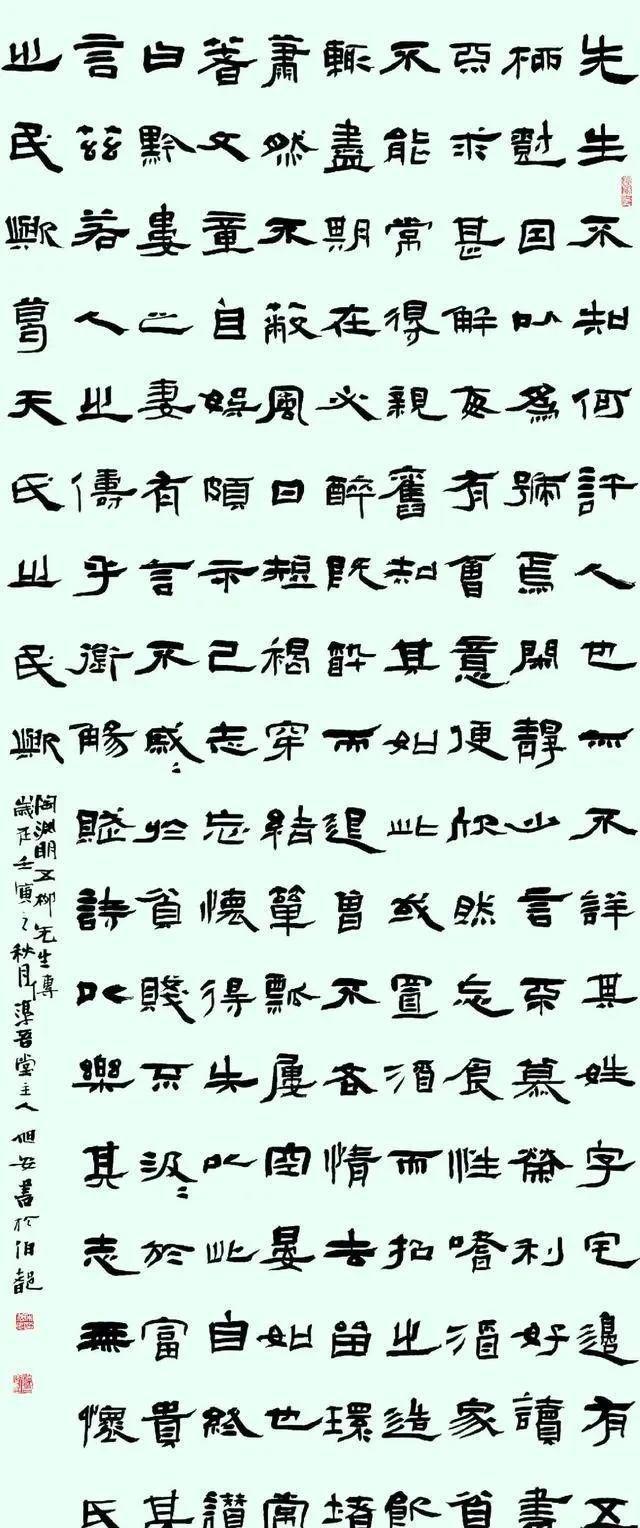 先生不知何許人也亦不詳其姓字宅邊有五
柳樹因以爲號焉閑靜少言不慕榮利好讀書
不求甚解每有會意便欣然忘食性嗜酒家貧
不能常得親舊知其如此或置酒而招之造飲
輒盡期在必醉既醉而退曾不吝情去留環堵
蕭然不蔽風日短褐穿結簞瓢屢空晏如也常
著文章自娛頗示己志忘懷得失以此自終讚
曰黔婁之妻有言不戚〻於貧賤不汲〻於富貴其
言茲若人之儔乎銜觴賦詩以樂其志無懷氏
之民歟葛天氏之民歟
陶淵明五柳先生傳
歲在壬寅之秋月淳晉堂主人書於